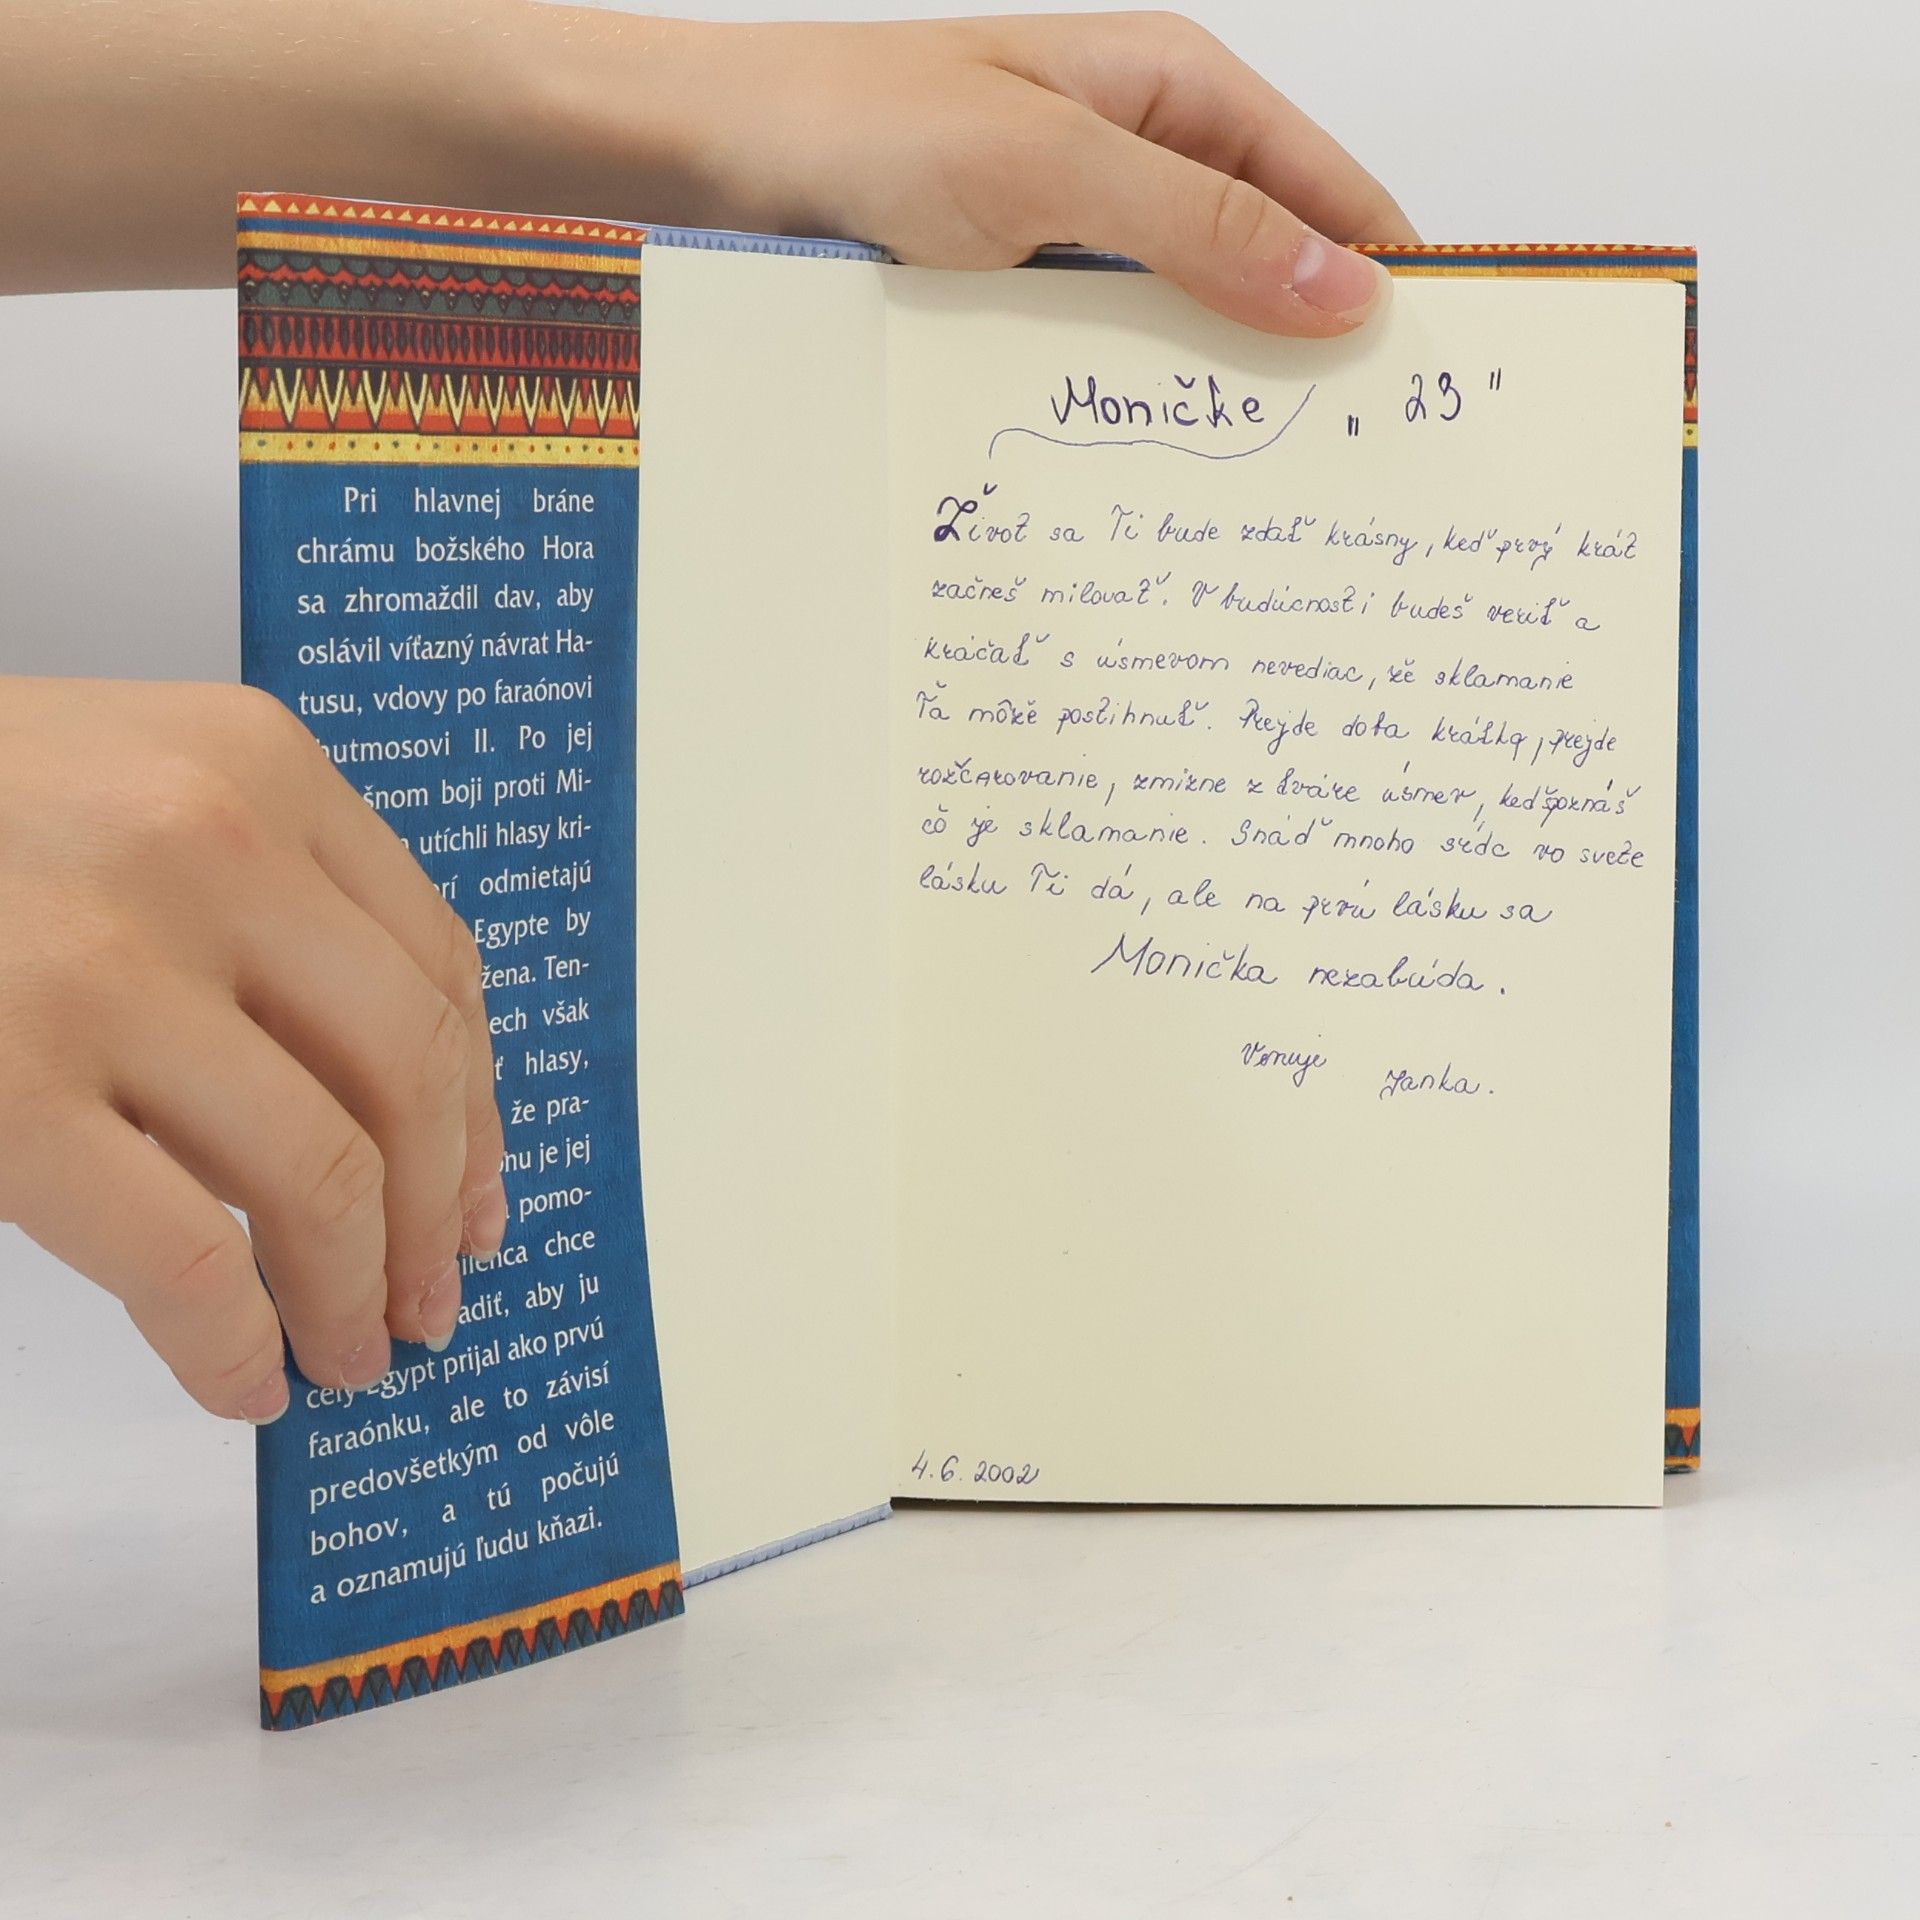 Pri hlavnej bráne
chrámu božského Hora
sa zhromaždil dav, aby
oslávil víťazný návrat Ha-
tusu, vdovy po faraónovi
hutmosovi II. Po jej
šnom boji proti Mi-
utíchli hlasy kri-
rí odmietajú
Egypte by
žena. Ten-
ech však
ť hlasy,
že pra-
nu je jej
pomo-
ilenca chce
adiť, aby ju
celý Egypt prijal ako prvú
faraónku, ale to závisí
predovšetkým od vôle
bohov, a tú počujú
a oznamujú ľudu kňazi.
Moničke „23"
Život sa Ti bude zdať krásny, keď prvý krát
začneš milovať. V budúcnosti budeš veriť a
kráčať s úsmevom nevediac, že sklamanie
Ťa môže postihnuť. Prejde doba krátka, prejde
rozčarovanie, zmizne z tváre úsmev, keď spoznáš
čo je sklamanie. Snáď mnoho sŕdc vo svete
lásku Ti dá, ale na prvú lásku sa
Monička nezabúda.
Venuje Janka.
4.6.2002